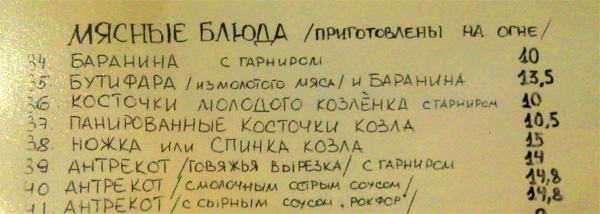 МЯСНЫЕ БЛЮДА /ПРИГОТОВЛЕНЫ НА ОГНЕ/
34 БАРАНИНА С ГАРНИРОМ 10
35 БУТИФАРА /ИЗ МОЛОТОГО МЯСА/ И БАРАНИНА 13,5
36 КОСТОЧКИ МОЛОДОГО КОЗЛЁНКА С ГАРНИРОМ 10
37 ПАНИРОВАННЫЕ КОСТОЧКИ КОЗЛА 10,5
38 НОЖКА ИЛИ СПИНКА КОЗЛА 15
39 АНТРЕКОТ /ГОВЯЖЬЯ ВЫРЕЗКА/ С ГАРНИРОМ 14
40 АНТРЕКОТ /С МОЛОЧНЫМ ОСТРЫМ СОУСОМ/ 14,8
41 АНТРЕКОТ /С СЫРНЫМ СОУСОМ "РОКФОР"/ 14,8